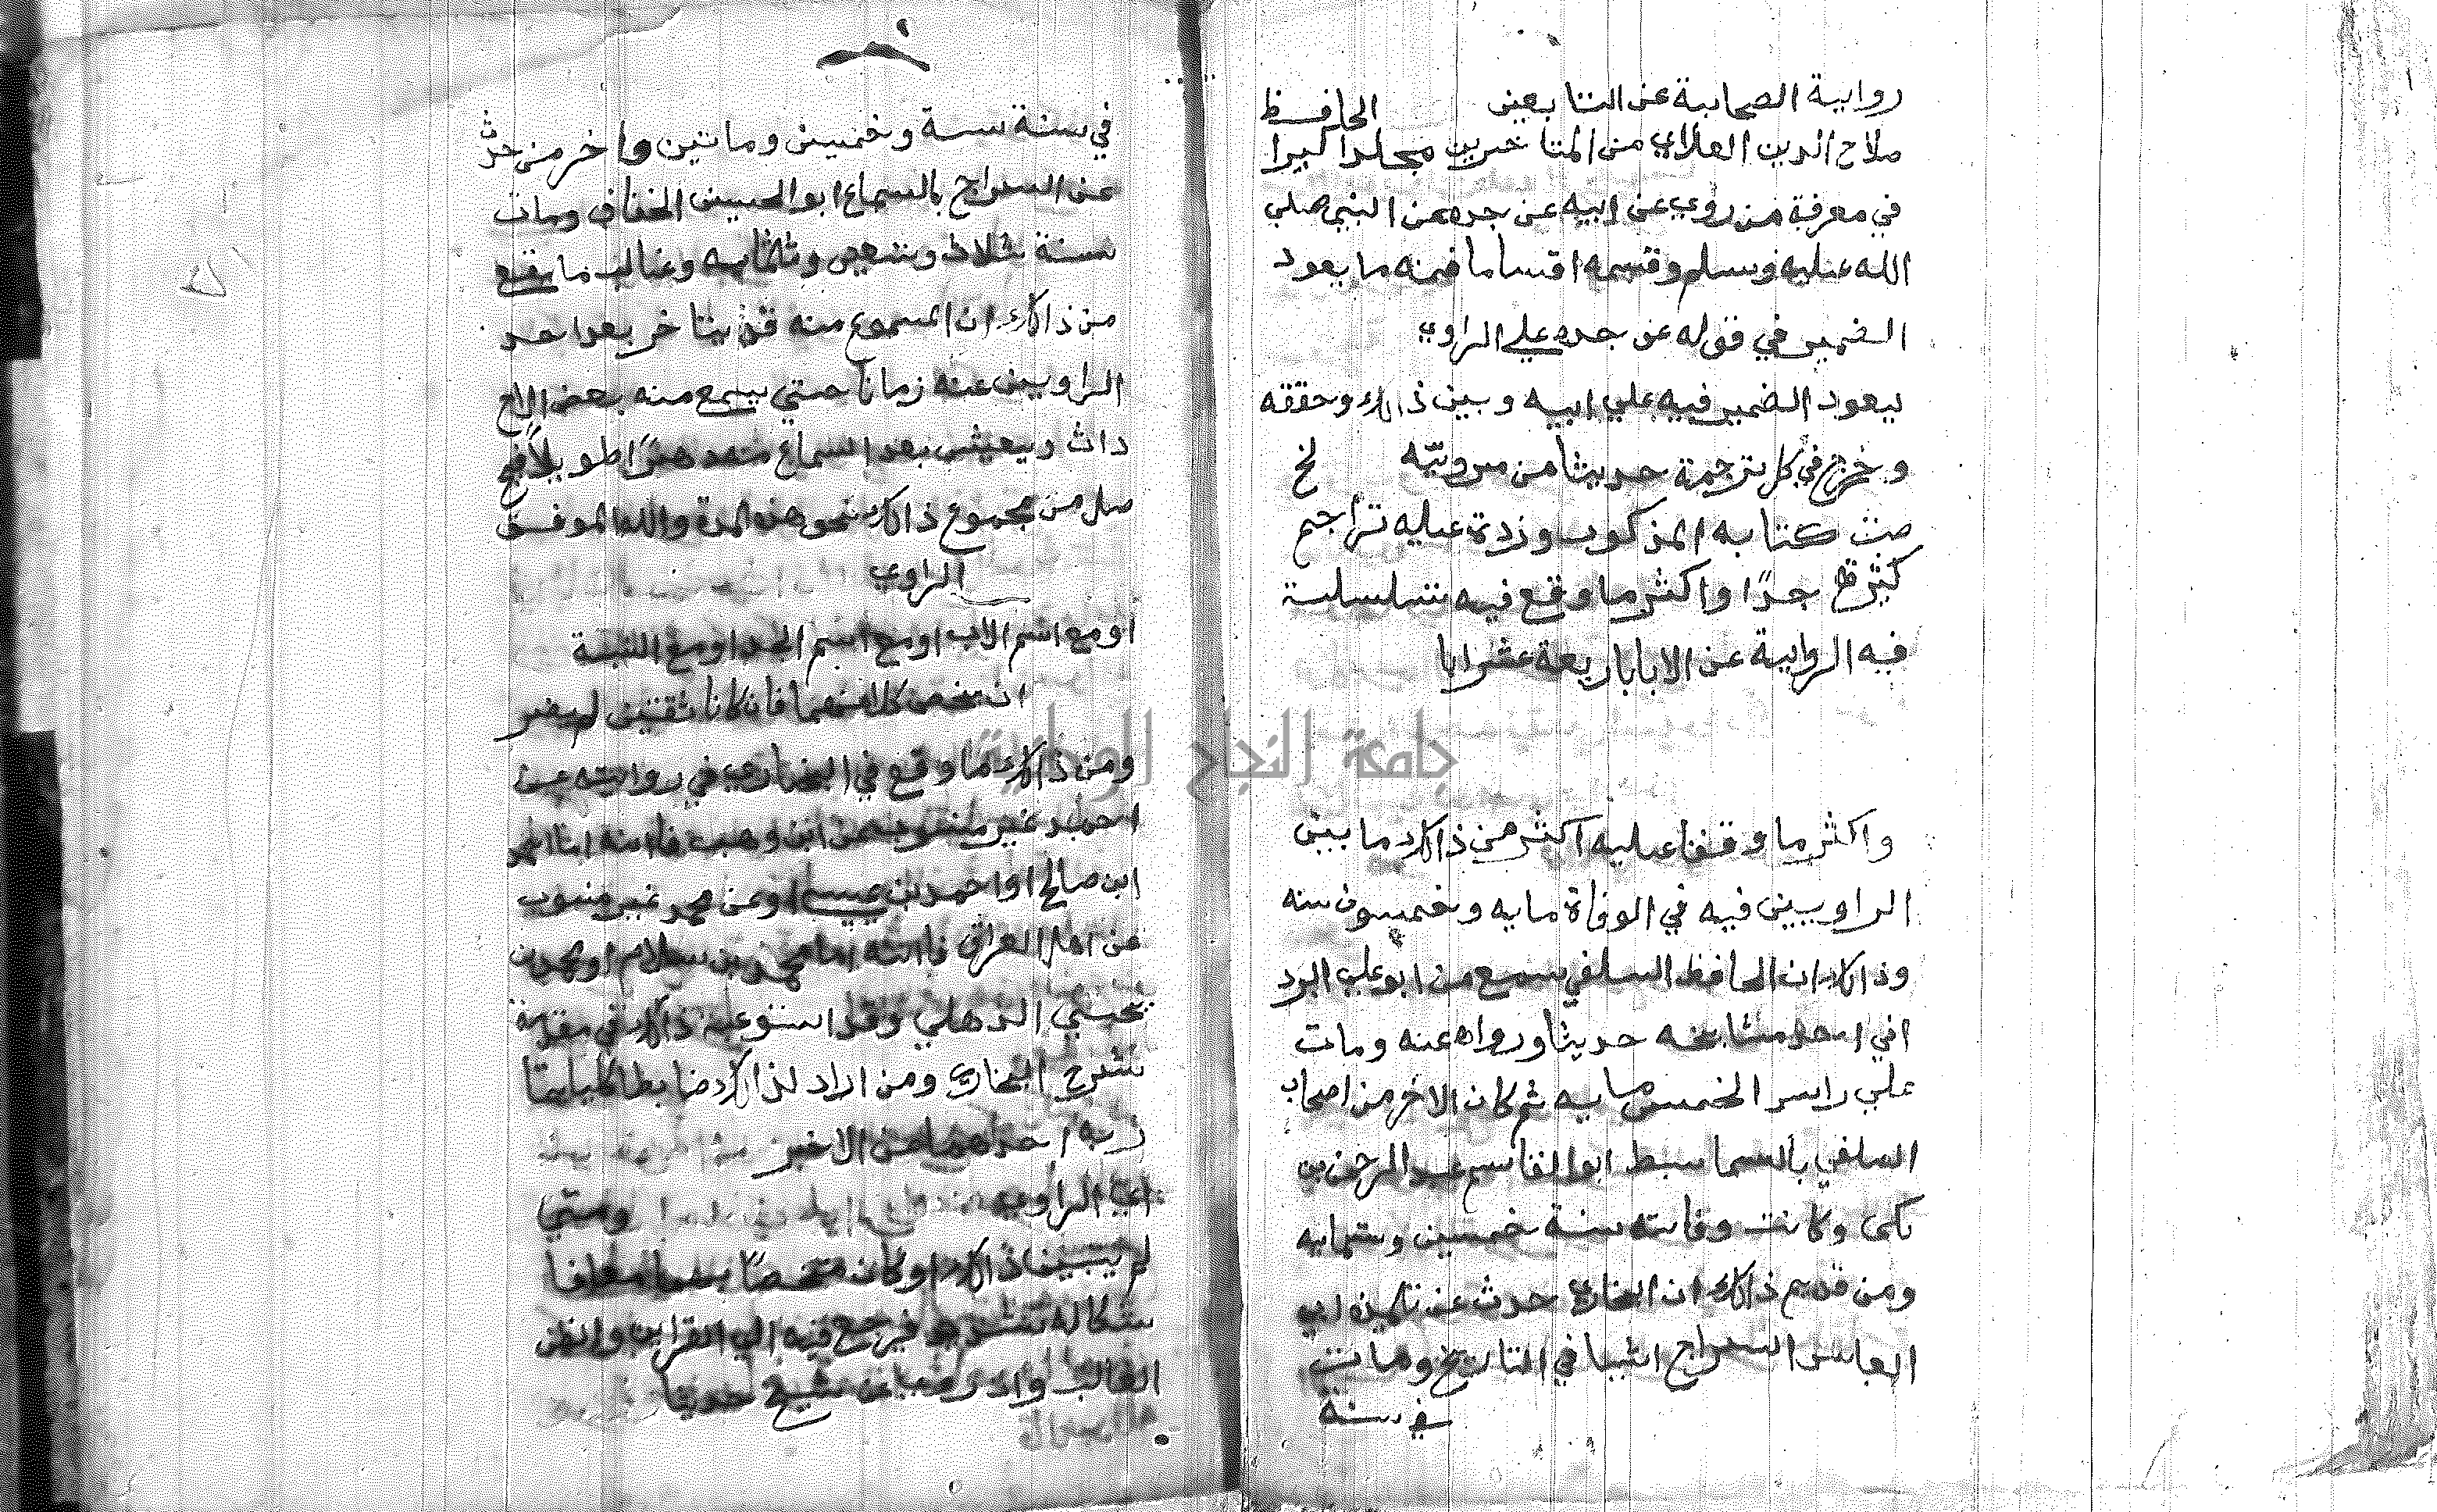 رواية الصحابة عن التابعين الحافظ
صلاح الدين العلاي من المتاخرين مجلدا كبيرا
في معرفة من روي عن ابيه عن جده عن النبي صلي
الله عليه وسلم وقسمه اقساما فمنه ما يعود
الضمير في قوله عن جده علي الراوي
يعود الضمير فيه علي ابيه وبين ذالك وحققه
وخرج في كل ترجمة حديثا من مرويه لخ
صت كتابه المذكور وزدة عليه تراجم
كثيرة جدًا واكثر ما وقع فيه تسلسلت
فيه الرواية عن الابا باربعة عشر ابا
واكثر ما وقفنا عليه اكثر من ذالك ما بين
الراويين فيه في الوفاة مايه وخمسون سنه
وذالك ان الحافظ السلفي سمع من ابو علي البرد
اني احد مشايخه حديثا ورواه عنه ومات
علي راس الخمس مايه ثم كان الاخر من اصحاب
السلفي بالسما سبط ابو القاسم عبد الرحمن بن
مكي وكانت وفاته سنة خمسين وستمايه
ومن قديم ذالك ان البخاري حدث عن تلميذه ابي
العباس السراج اشيا في التاريخ ومات
في سنة
في سنة ستة وخمسين وماتين واخر من حدث
عن السراج بالسماع ابو الحسين الخفاف ومات
سنة ثلاث وتسعين وثلثمايه وغالب ما يقع
من ذالك ان المسموع منه قد يتاخر بعد احد
الراويين عنه زمانا حتي يسمع منه بعض الاح
داث ويعيش بعد السماع منه دهرًا طويلًا فيح
صل من مجموع ذالك نحو هذه المدة والله الموفق
الراوي
او مع اسم الاب او مع اسم الجد او مع النسبة
ان يختص كلا منهما فان كانا ثقتين لم يضر
ومن ذالك ما وقع في البخاري في روايته عن
احمد غير منسوب عن ابن وهب فانه اما احمد
ابن صالح او احمد بن عيسي او عن محمد غير منسوب
عن اهل العراق فانه اما محمد بن سلام او محمد بن
يحيي الذهلي وقد استوعبة ذالك في مقدمة
شرح البخاري ومن اراد لذالك ضابطا كليا يمتا
ز به احدهما عن الاخر
الراوي ومتي
لم يتبين ذالك او كان مختصًا بهما معا فا
شكاله شديد فيرجع فيه الي القراين والظن
الغالب وان روي عن شيخ حديثا